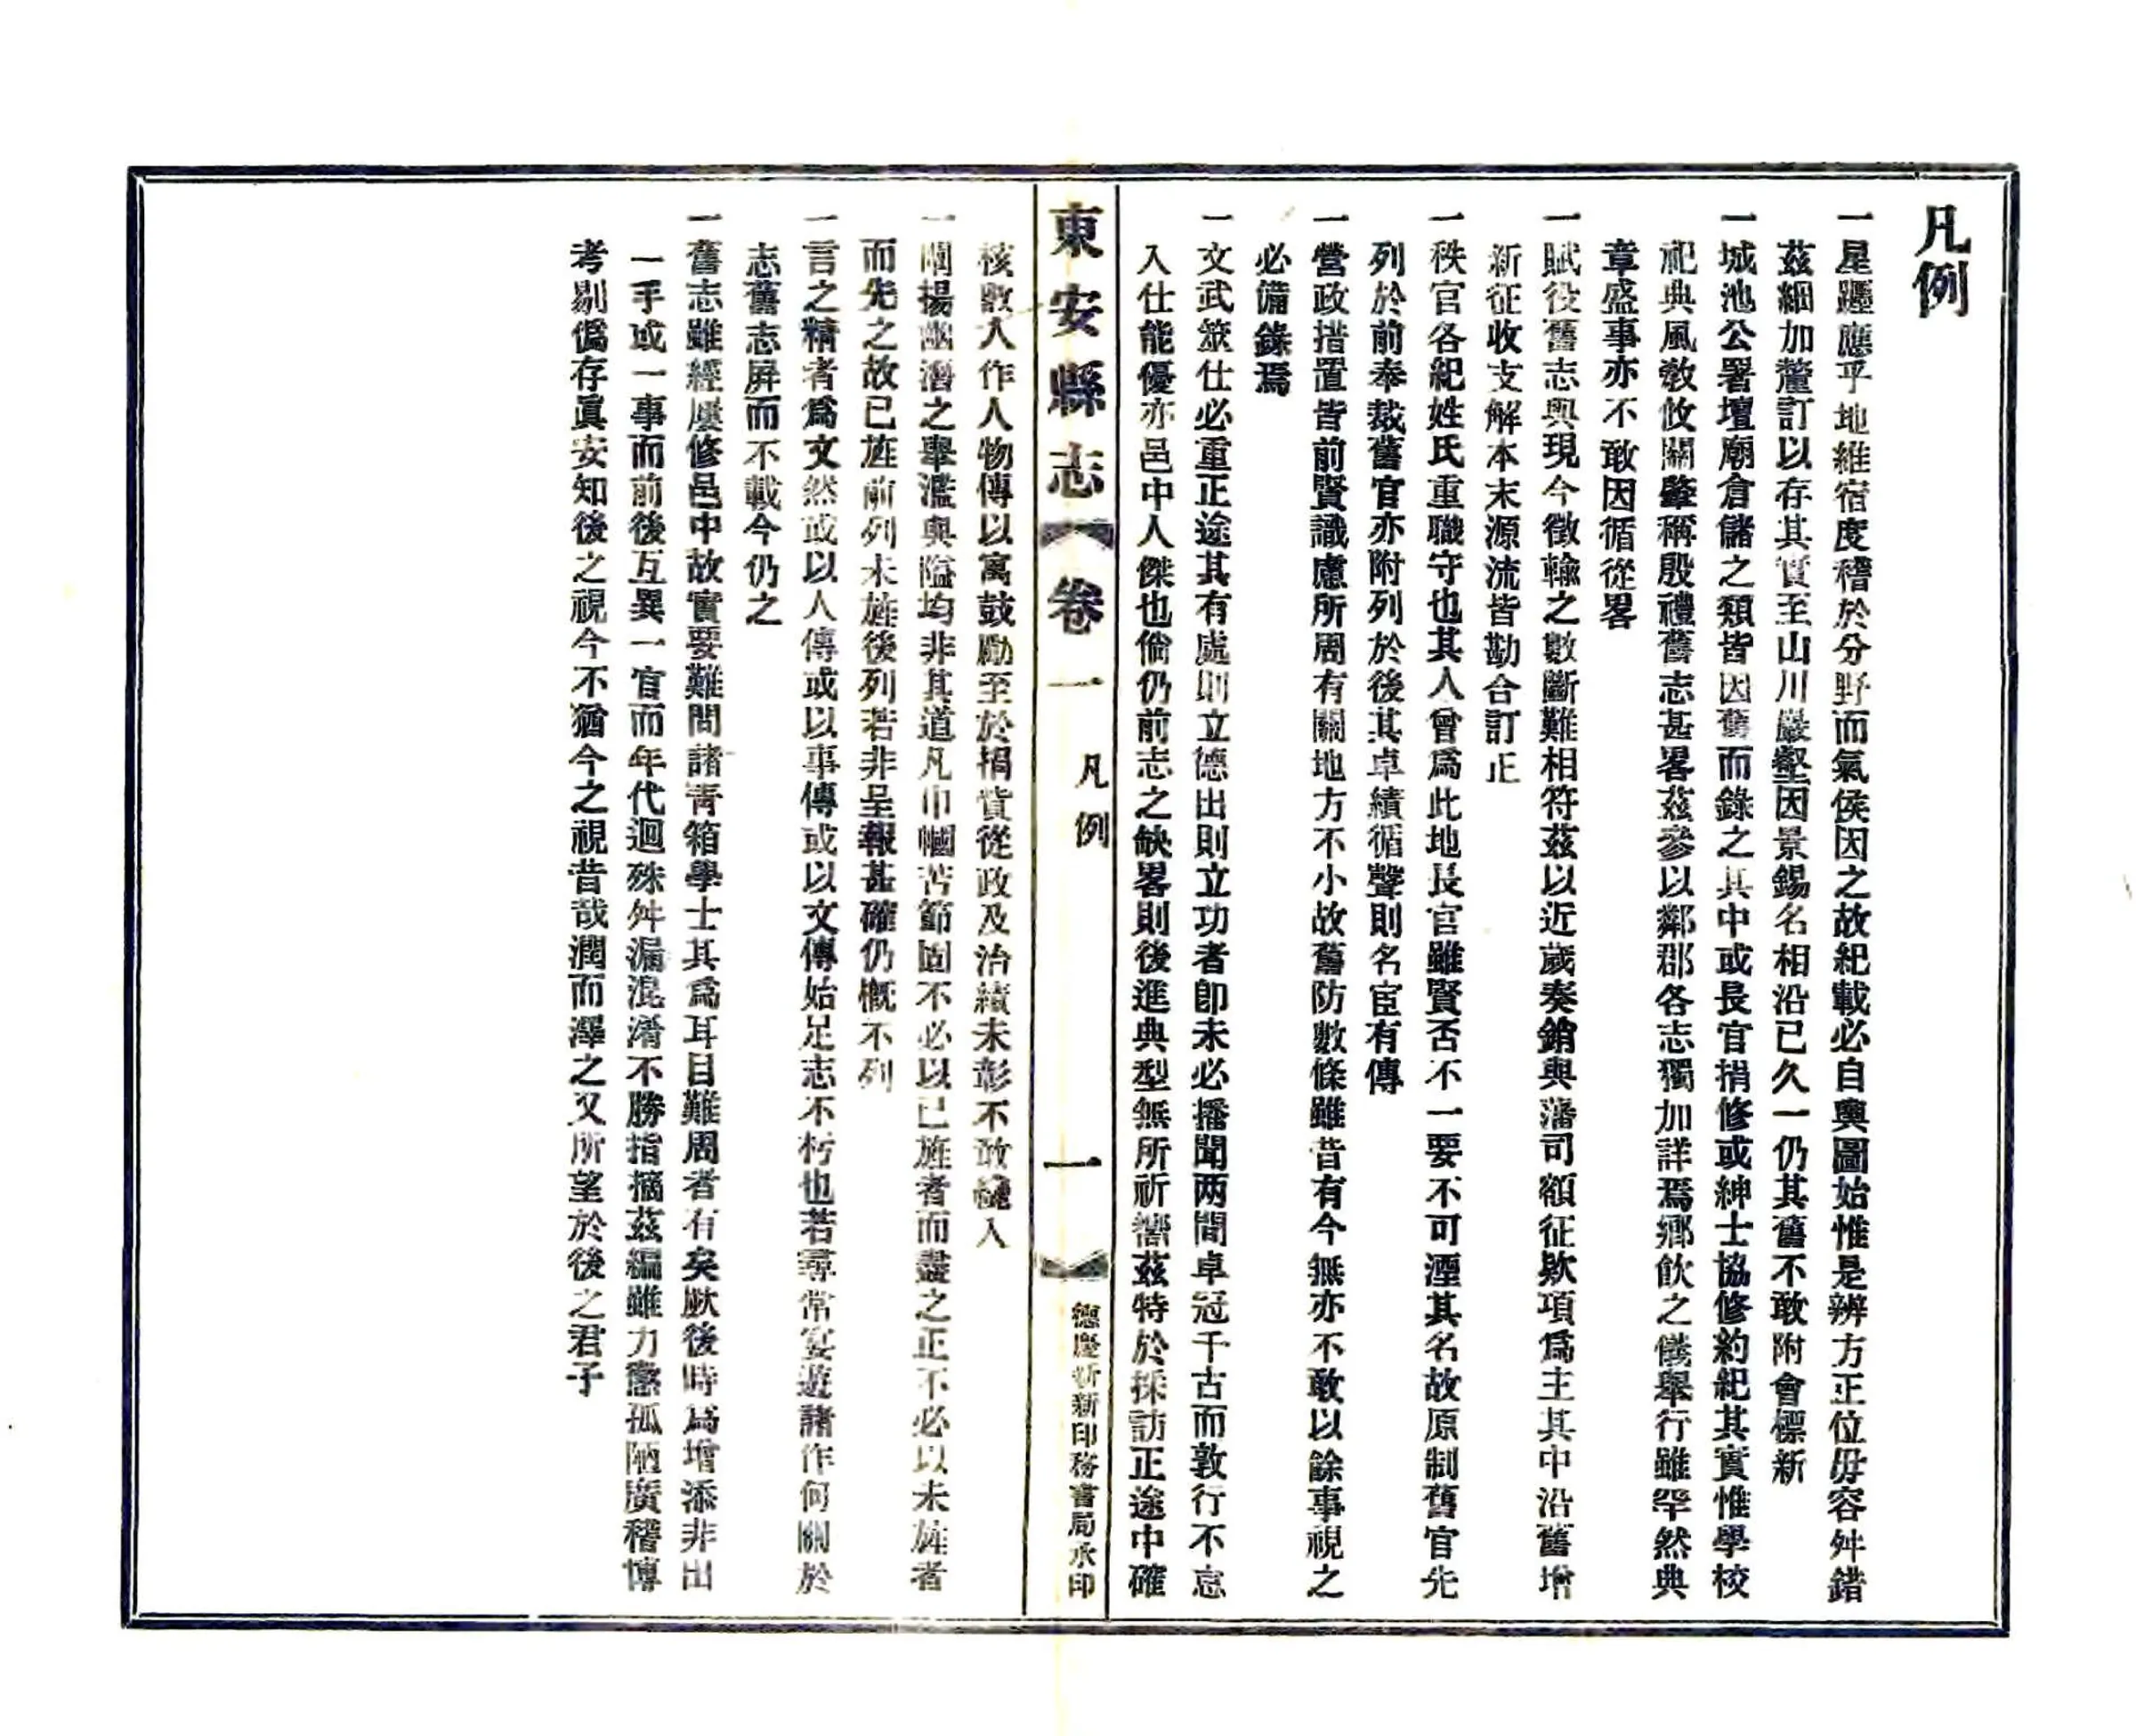 凡例
一星躔應乎地維宿度稽於分野而氣侯因之故紀載必自輿圖始惟是辨方正位毋容舛錯
茲細加釐訂以存其實至山川巖壑因景錫名相沿已久一仍其舊不敢附會標新
一城池公署壇廟倉儲之類皆因舊而錄之其中或長官捐修或紳士協修約紀其實惟學校
祀典風敎攸關肇稱殷禮舊志甚畧茲參以鄰郡各志獨加詳焉鄉飲之儀舉行雖罕然典
章盛事亦不敢因循從畧
一賦役舊志與現今徵輸之數斷難相符茲以近歲奏銷與藩司額征欵項爲主其中沿舊增
新征收支解本末源流皆勘合訂正
一秩官各紀姓氏重職守也其人曾爲此地長官雖賢否不一要不可湮其名故原制舊官先
列於前奉裁舊官亦附列於後其卓績循聲則名宦有傳
一營政措置皆前賢識慮所周有關地方不小故舊防數條雖昔有今無亦不敢以餘事視之
必備錄焉
一文武筮仕必重正途其有處則立德出則立功者卽未必播聞两間卓冠千古而敦行不怠
入仕能優亦邑中人傑也倘仍前志之缺畧則後進典型無所祈嚮茲特於採訪正途中確
東安縣志 卷一 凡例 一 德慶新新印務書局承印
核數人作人物傳以寓鼓勵至於捐貲從政及治績未彰不敢入
一闡揚幽潛之舉濫與隘均非其道凡巾幗苦節固不必以已旌者而盡之正不必以未旌者
而先之故已旌前列未旌後列若非呈報甚確仍槪不列
一言之精者爲文然或以人傳或以事傳或以文傳始足志不朽也若尋常宴遊諸作何關於
志舊志屏而不載今仍之
一舊志雖經屢修邑中故實要難問諸靑箱學士其爲耳目難周者有矣厥後時爲增添非出
一手或一事而前後互異一官而年代迴殊舛漏混淆不勝指摘茲編雖力懲孤陋廣稽博
考剔僞存眞安知後之視今不猶今之視昔哉潤而澤之又所望於後之君子